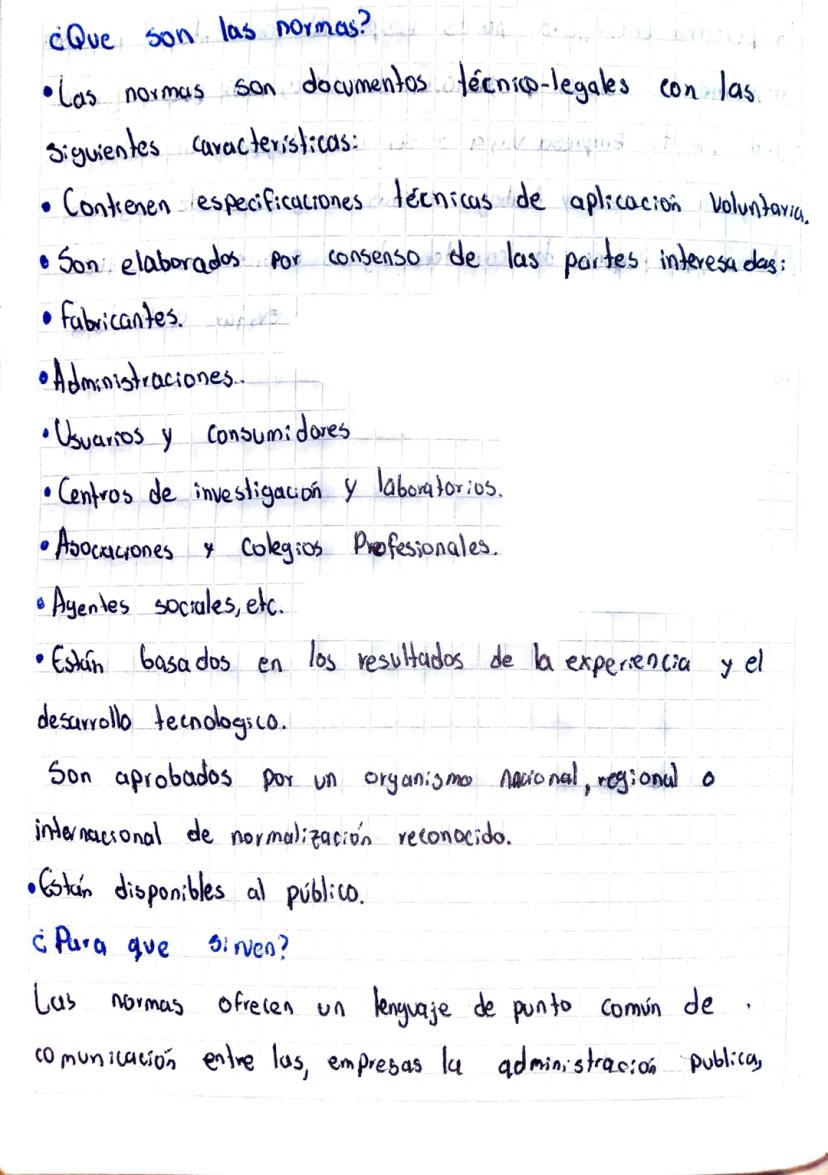 ¿Que son las normas?
• Las normas son documentos técnico-legales con las
siguientes características:
• Contienen especificaciones técnicas de aplicación voluntaria.
• Son elaborados por consenso de las partes interesadas:
• fabricantes.
• Administraciones.
• Usuarios y consumidores
• Centros de investigación y laboratorios.
• Asociaciones y Colegios Profesionales.
• Agentes sociales, etc.
• Están basados en los resultados de la experiencia y el
desarrollo tecnologico.
Son aprobados por un organismo nacional, regional o
internacional de normalización reconocido.
• Están disponibles al público.
¿Para que sirven?
Las normas ofrecen un lenguaje de punto común de .
comunicación entre las, empresas la administración publica,